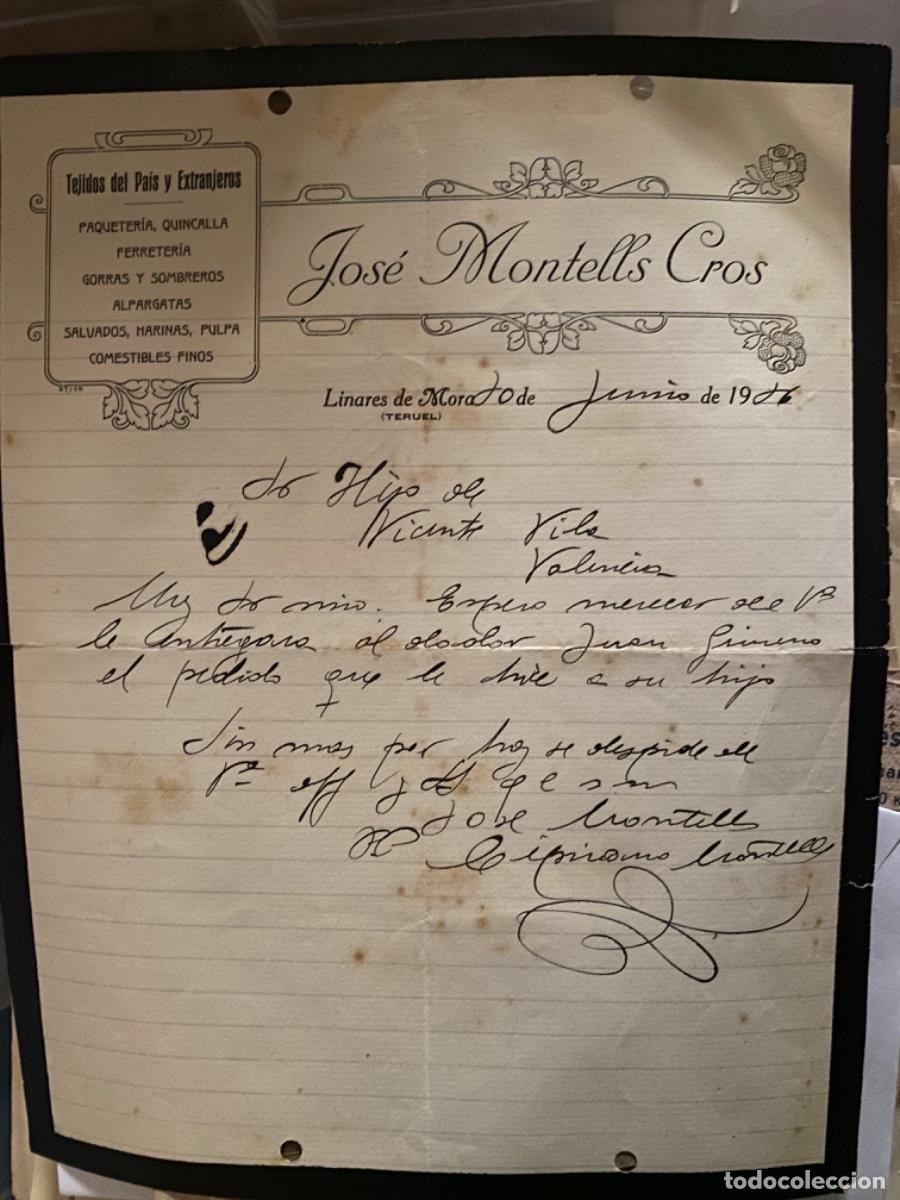 Tejidos del País y Extranjeros
PAQUETERÍA, QUINCALLA
FERRETERÍA
GORRAS Y SOMBREROS
ALPARGATAS
SALVADOS, HARINAS, PULPA
COMESTIBLES FINOS
José Montells Cros
Linares de Mora de Junio de 19
(TERUEL)
Sr Hijo de
Vicente Vila
Valencia
Muy Sr mio. Espero merecer de Vd
le entregara al dador Juan Gimeno
el pedido que le hice a su hijo
Sin mas por hoy se despide de
Vd aff y SS q e s m
José Montells
Cipriano Montells
todocoleccion